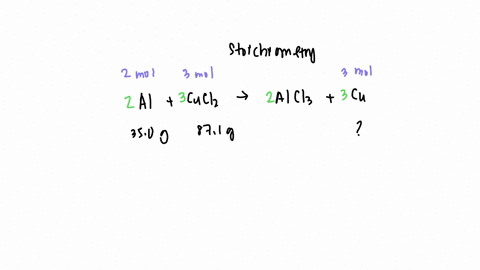 Stoichiometry
2 mol 3 mol 3 mol
2Al + 3CuCl2 → 2AlCl3 + 3Cu
35.0 g 87.1 g ?